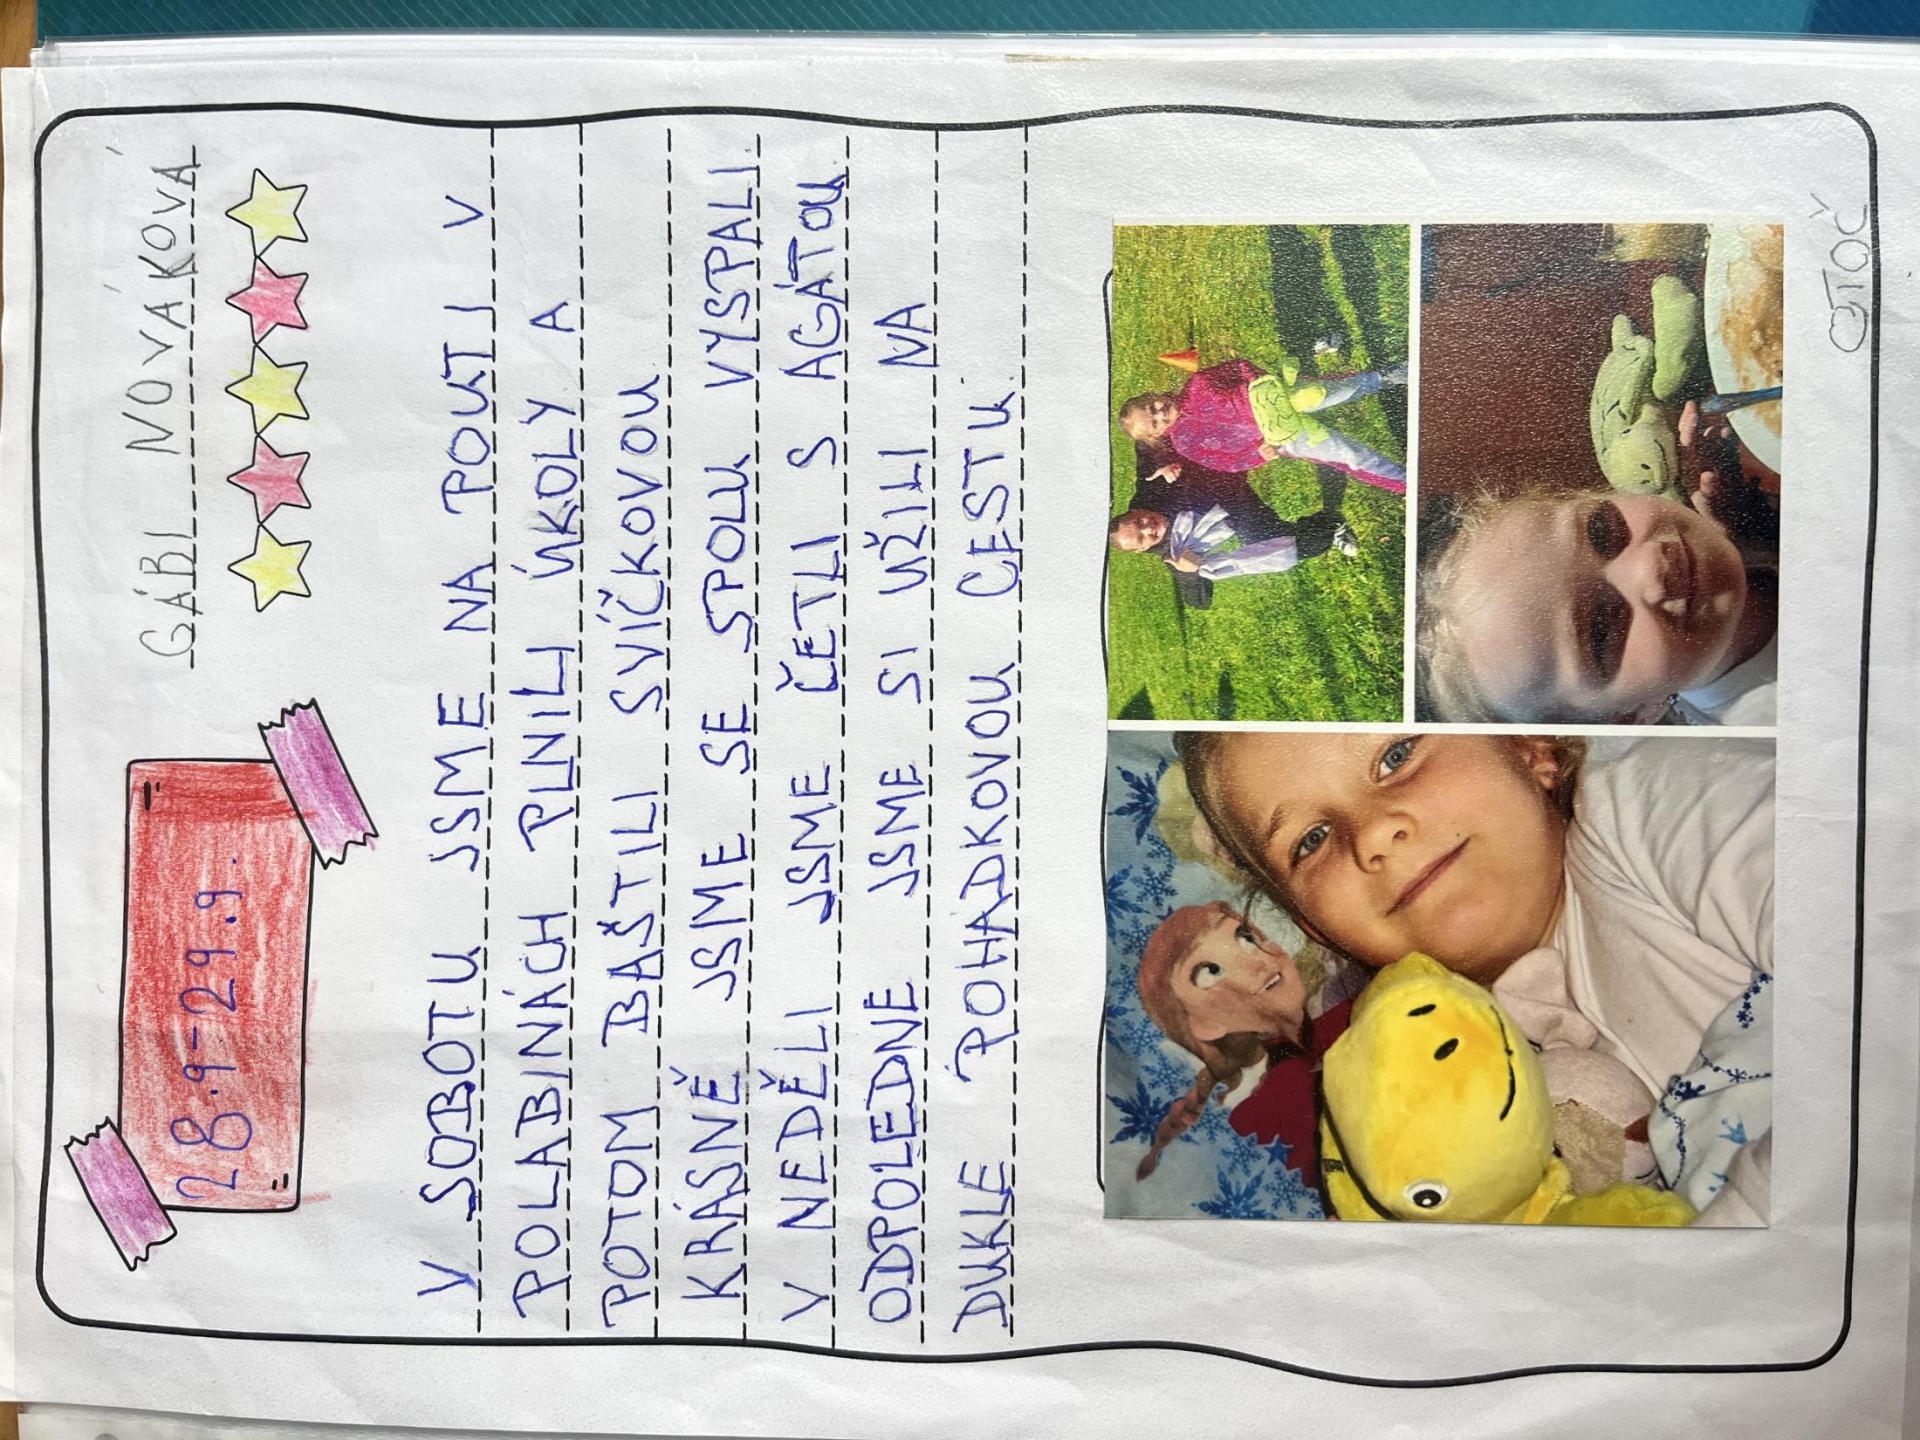 28.9-29.9.
GÁBI NOVÁKOVÁ
V SOBOTU JSME NA POUTI V
POLABINÁCH PLNILI ÚKOLY A
POTOM BAŠTILI SVÍČKOVOU.
KRÁSNĚ JSME SE SPOLU VYSPALI.
V NEDĚLI JSME ČETLI S AGÁTOU.
ODPOLEDNE JSME SI UŽILI NA
DUKLE POHÁDKOVOU CESTU.
OTOČ